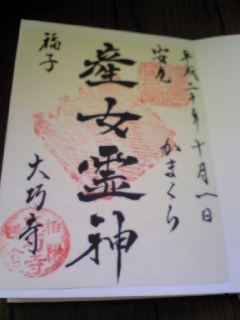 平成二十年十月八日
安産
かまくら
産女霊神
福子
大巧寺